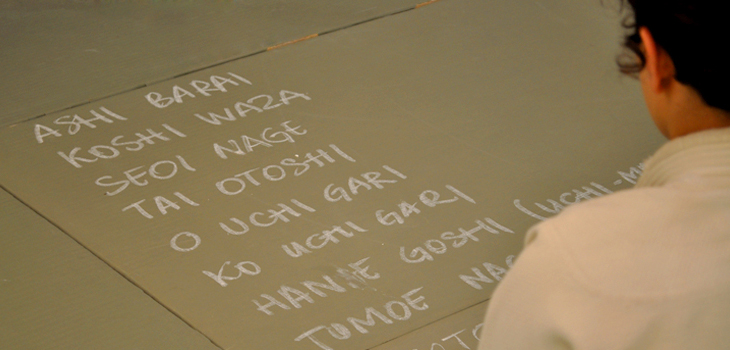 ASHI BARAI
KOSHI WAZA
SEOI NAGE
TAI OTOSHI
O UCHI GARI
KO UCHI GARI
HANNE GOSHI (UCHI-M
TOMOE NAG